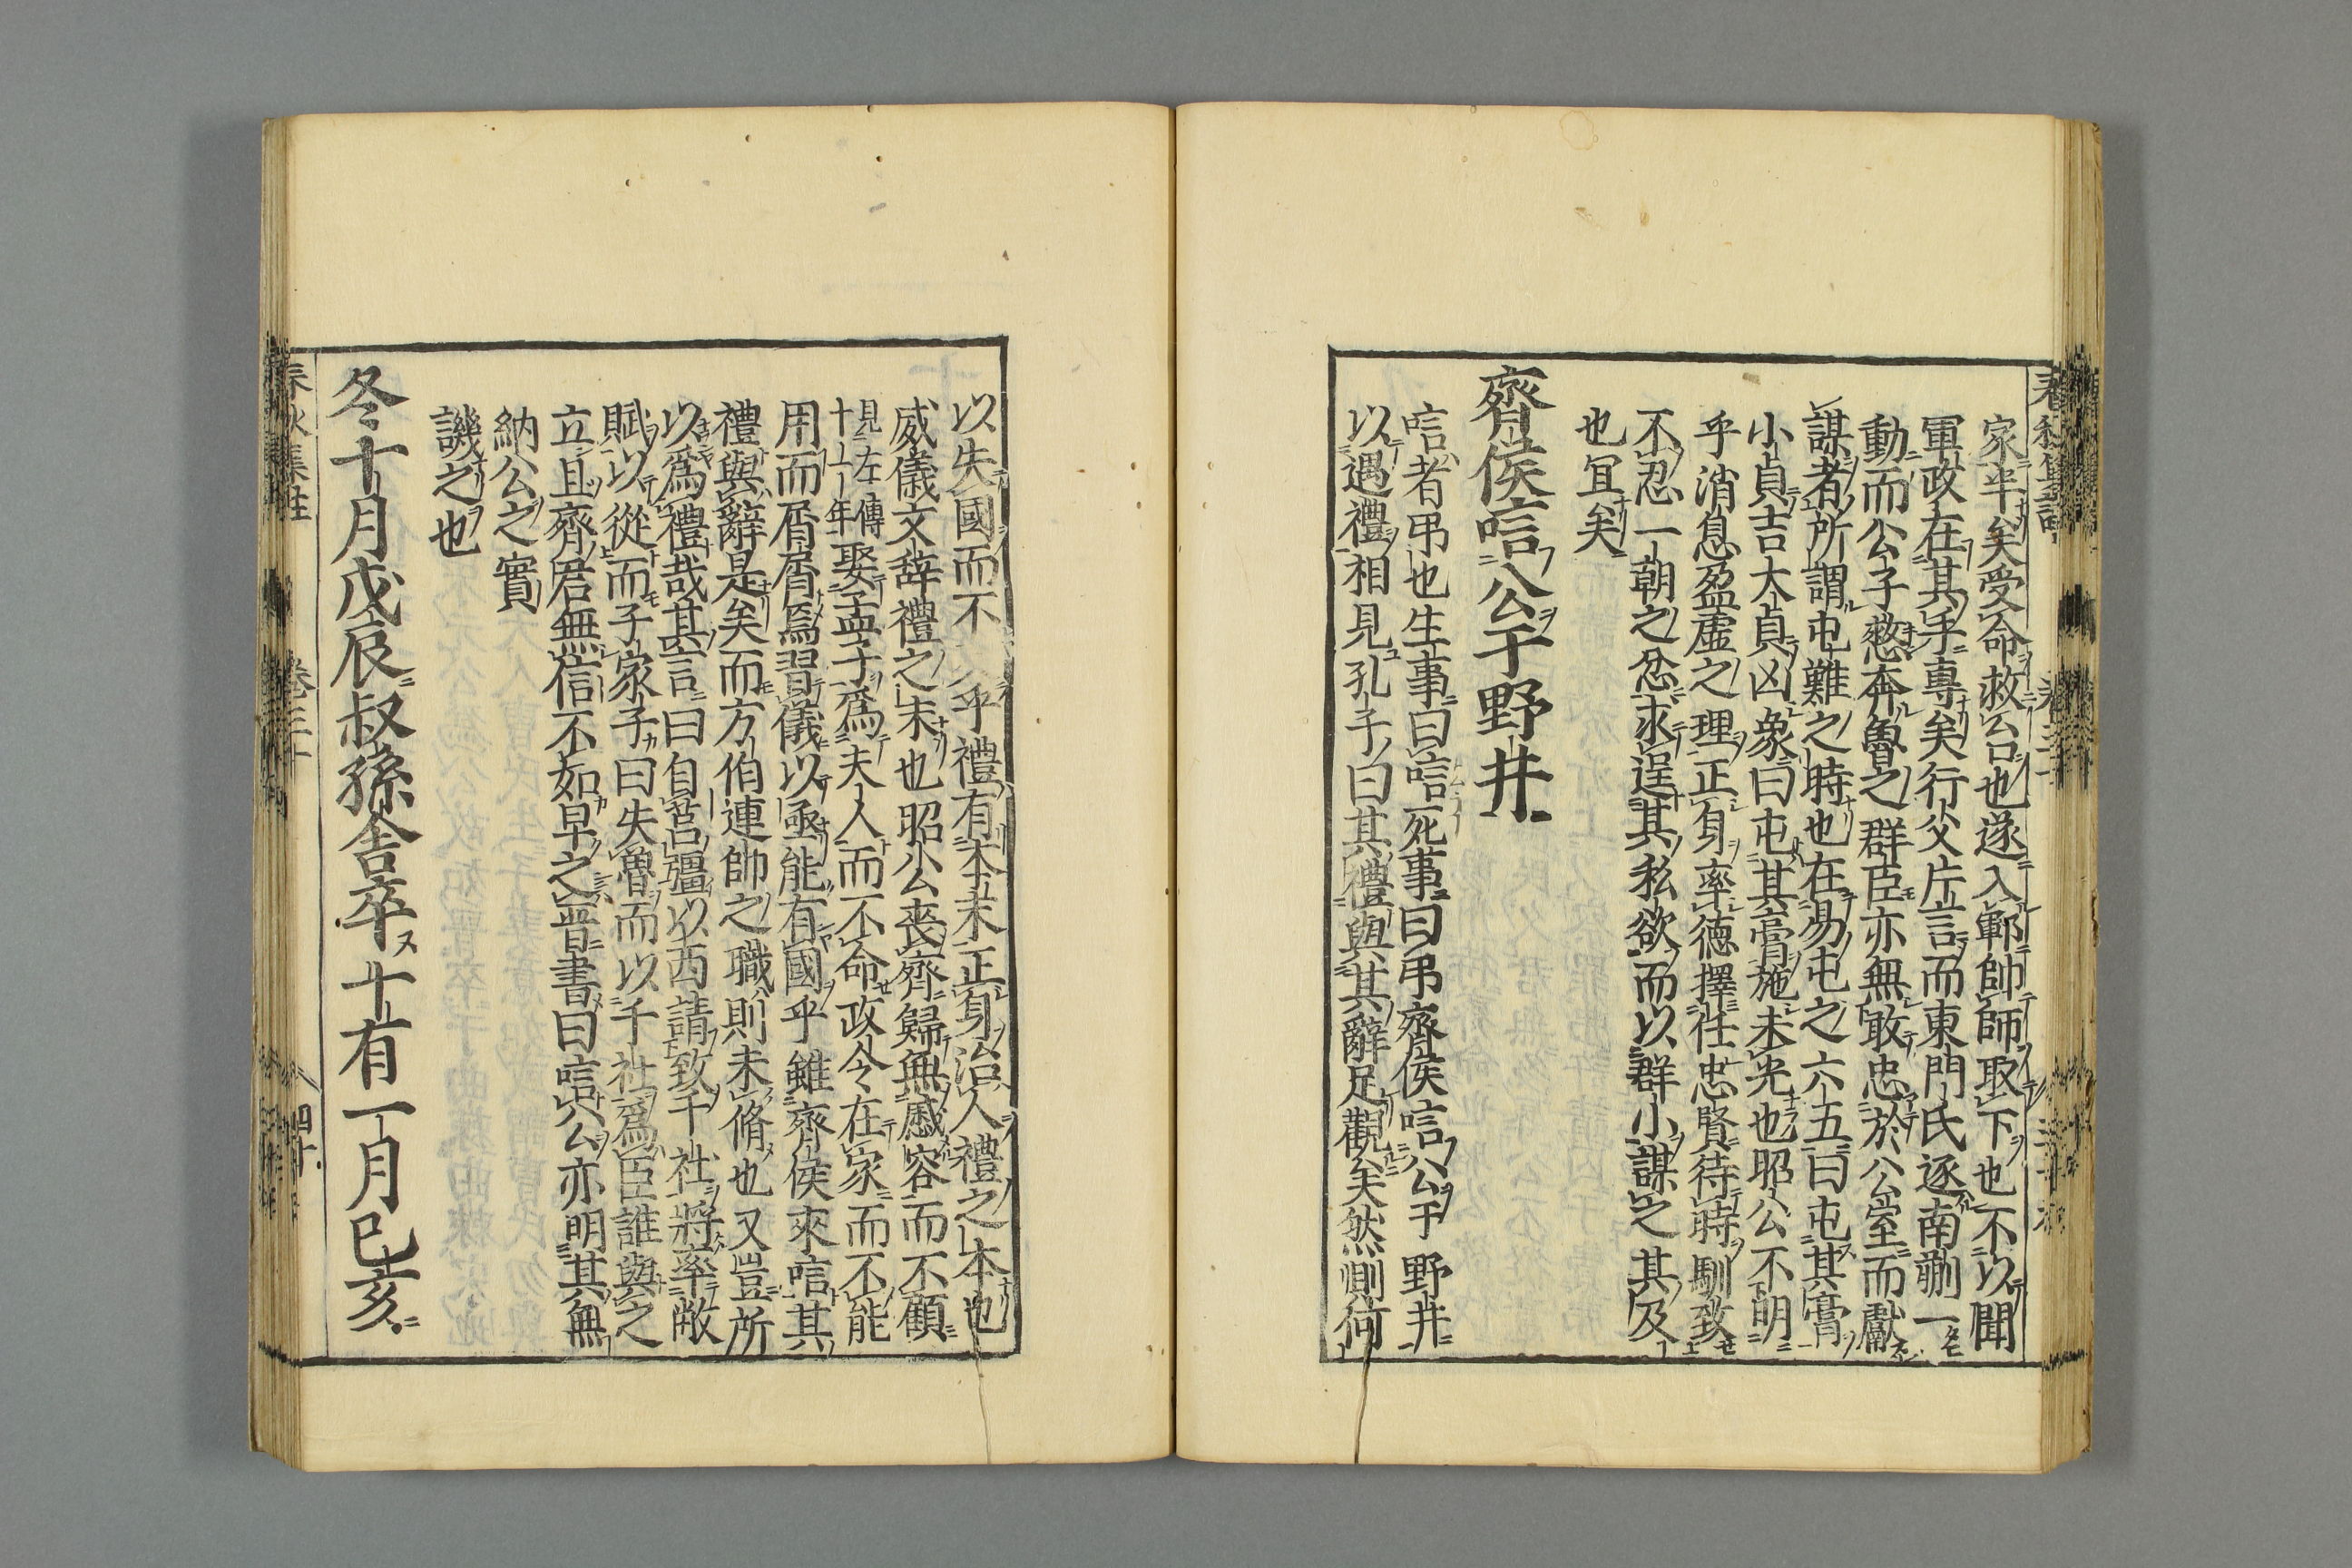 家半矣受命救台也遂入鄆帥師取卞也不以聞
軍政在其手專矣行父片言而東門氏逐南蒯一
動而公子憖奔魯之群臣亦無敢忠於公室而獻
謀者所謂屯難之時也在易屯之六五曰屯其膏
小貞吉大貞凶象曰屯其膏施未光也昭公不明
乎消息盈虛之理正身率德擇任忠賢待時馴致
不忍一朝之忿求逞其私欲而以群小謀之其及
也冝矣
齊侯唁公于野井
唁者弔也生事曰唁死事曰弔齊侯唁公于野井
以遇禮相見孔子曰其禮與其辭足觀矣然則何
以失國而不乎禮有本末正身治人禮之本也
威儀文辞禮之末也昭公喪齊歸無慼容而不顧
見左傳十一年娶孟子爲夫人而不命政令在家而不能
用而屑屑焉習儀以亟能有國乎雖齊侯來唁其
禮與辭是矣而方伯連帥之職則未脩也又豈所
以爲禮哉其言曰自莒疆以西請致千社將率敝
賦以從而子家子曰失魯而以千社爲臣誰與之
立且齊君無信不如早之晋書曰唁公亦明其無
納公之實
譏之也
冬十月戊辰叔孫舍卒十有一月己亥
春秋集註 卷二十 四十